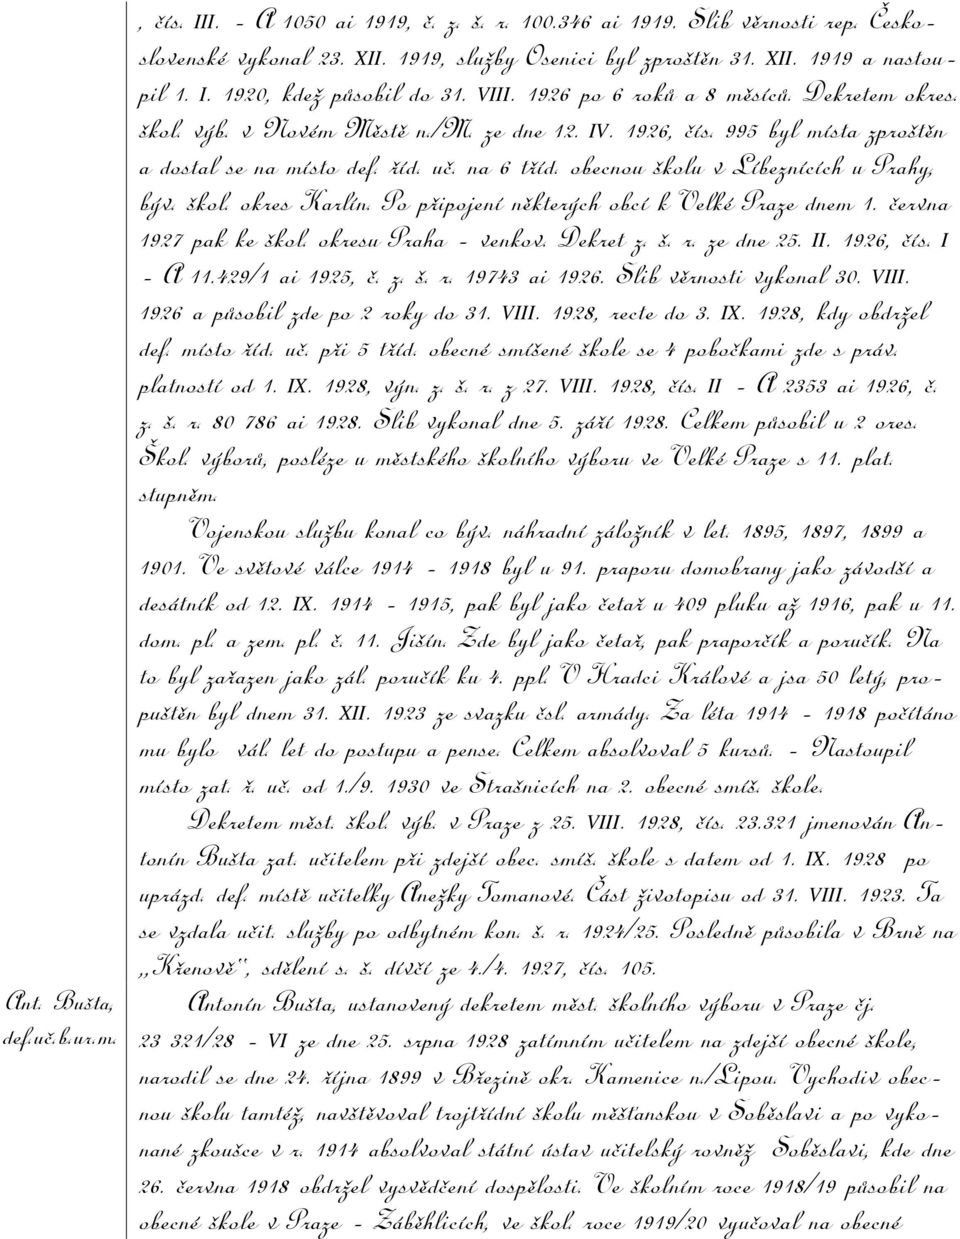 , čís. III. - A 1050 ai 1919, č. z. š. r. 100.346 ai 1919. Slib věrnosti rep. Česko-
slovenské vykonal 23. XII. 1919, služby Osenici byl zproštěn 31. XII. 1919 a nastou-
pil 1. I. 1920, kdež působil do 31. VIII. 1926 po 6 roků a 8 měsíců. Dekretem okres.
škol. výb. v Novém Městě n./M. ze dne 12. IV. 1926, čís. 995 byl místa zproštěn
a dostal se na místo def. říd. uč. na 6 tříd. obecnou školu v Líbeznících u Prahy,
býv. škol. okres Karlín. Po připojení některých obcí k Velké Praze dnem 1. června
1927 pak ke škol. okresu Praha - venkov. Dekret z. š. r. ze dne 25. II. 1926, čís. I
- A 11.429/1 ai 1925, č. z. š. r. 19743 ai 1926. Slib věrnosti vykonal 30. VIII.
1926 a působil zde po 2 roky do 31. VIII. 1928, recte do 3. IX. 1928, kdy obdržel
def. místo říd. uč. při 5 tříd. obecné smíšené škole se 4 pobočkami zde s práv.
platností od 1. IX. 1928, výn. z. š. r. z 27. VIII. 1928, čís. II - A 2353 ai 1926, č.
z. š. r. 80 786 ai 1928. Slib vykonal dne 5. září 1928. Celkem působil u 2 ores.
Škol. výborů, posléze u městského školního výboru ve Velké Praze s 11. plat.
stupněm.
Vojenskou službu konal co býv. náhradní záložník v let. 1895, 1897, 1899 a
1901. Ve světové válce 1914 - 1918 byl u 91. praporu domobrany jako závodší a
desátník od 12. IX. 1914 - 1915, pak byl jako četař u 409 pluku až 1916, pak u 11.
dom. pl. a zem. pl. č. 11. Jišín. Zde byl jako četař, pak praporčík a poručík. Na
to byl zařazen jako zál. poručík ku 4. ppl. V Hradci Králové a jsa 50 letý, pro-
puštěn byl dnem 31. XII. 1923 ze svazku čsl. armády. Za léta 1914 - 1918 počítáno
mu bylo vál. let do postupu a pense. Celkem absolvoval 5 kursů. - Nastoupil
místo zat. ř. uč. od 1./9. 1930 ve Strašnicích na 2. obecné smíš. škole.
Dekretem měst. škol. výb. v Praze z 25. VIII. 1928, čís. 23.321 jmenován An-
tonín Bušta zat. učitelem při zdejší obec. smíš. škole s datem od 1. IX. 1928 po
uprázd. def. místě učitelky Anežky Tomanové. Část životopisu od 31. VIII. 1923. Ta
se vzdala učit. služby po odbytném kon. š. r. 1924/25. Posledně působila v Brně na
„Křenově“, sdělení s. š. dívčí ze 4./4. 1927, čís. 105.
Ant. Bušta,
def.uč.b.ur.m.
Antonín Bušta, ustanovený dekretem měst. školního výboru v Praze čj.
23 321/28 - VI ze dne 25. srpna 1928 zatímním učitelem na zdejší obecné škole,
narodil se dne 24. října 1899 v Březině okr. Kamenice n./Lipou. Vychodiv obec-
nou školu tamtéž, navštěvoval trojtřídní školu měšťanskou v Soběslavi a po vyko-
nané zkoušce v r. 1914 absolvoval státní ústav učitelský rovněž Soběslavi, kde dne
26. června 1918 obdržel vysvědčení dospělosti. Ve školním roce 1918/19 působil na
obecné škole v Praze - Záběhlicích, ve škol. roce 1919/20 vyučoval na obecné